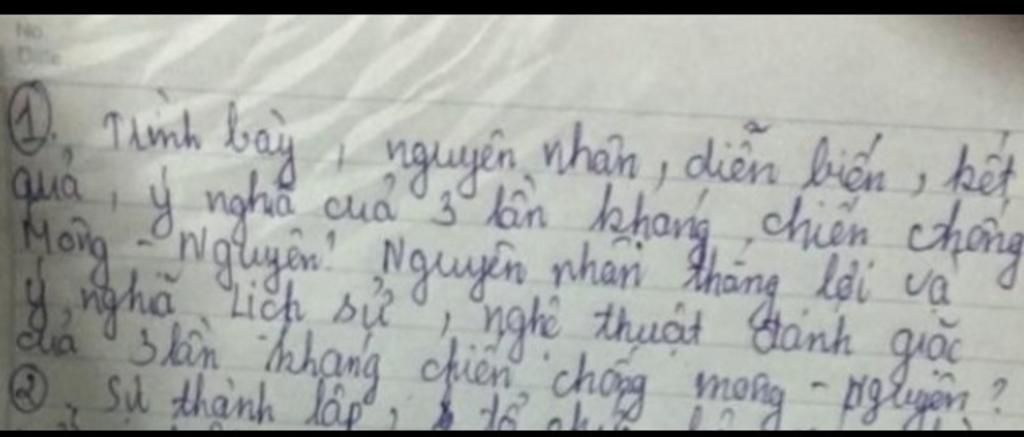 No.
Date
①. Trình bày, nguyên nhân, diễn biến, kết
quả, ý nghĩa cuả 3 lần kháng chiến chống
Mông - Nguyên? Nguyên nhân thắng lợi và
ý nghĩa Lịch sử, nghệ thuật đánh giặc
cuả 3 lần kháng chiến chống mông - nguyên?
②. Sự thành lập, tổ